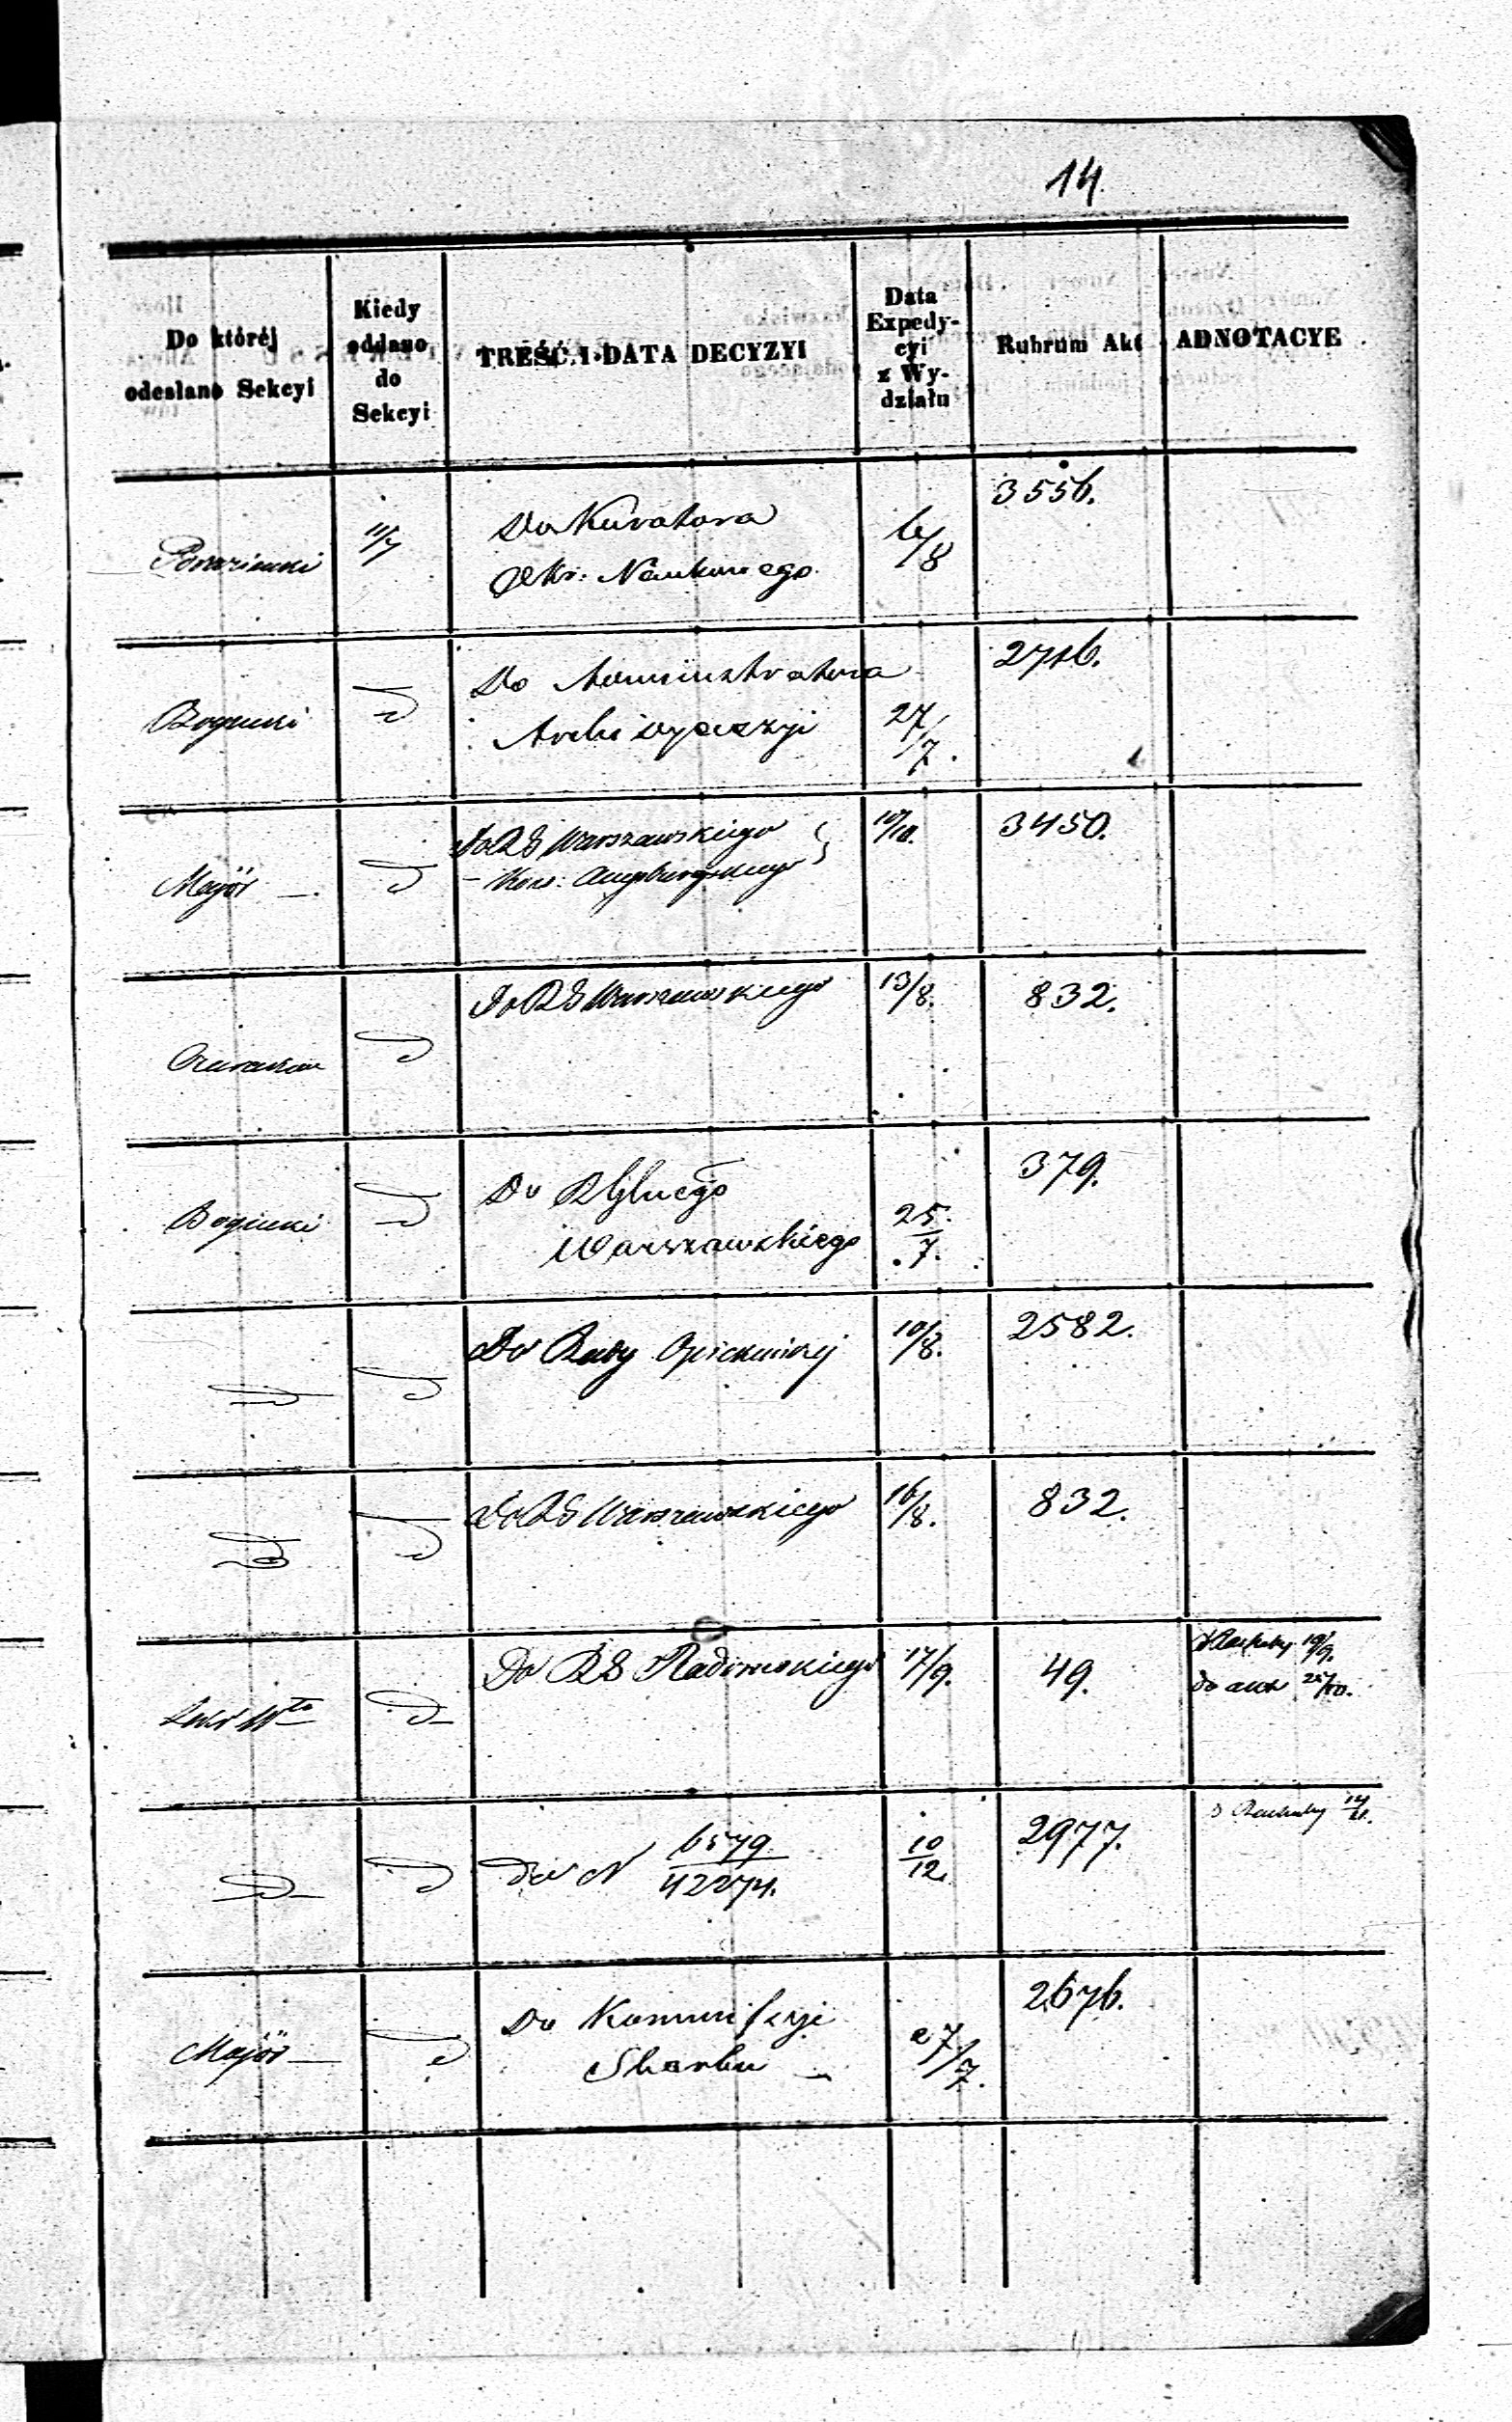 14
Do któréj
odesłano Sekcyi
Kiedy
oddano
do
Sekcyi
TREŚĆ I DATA DECYZYI
Data
Expedy-
cyi
z Wy-
działu
Rubrum Akt
ADNOTACYE
11/7
Do Kuratora
Okr: Naukowego
6/8
3556.
Do Administratora
Archidyecezyi
27/7.
Major
Do RG Warszawskiego
- Kons: Augsburgskiego
10/10.
3450.
Do RG Warszawskiego
13/8.
832.
Do
Warszawskiego
25/7.
379.
Do Rady Opiekuńczej
10/8.
2582.
Do RG Warszawskiego
16/8.
832.
Do RG Radomskiego
17/9.
49.
do akt
do N 6579/42274.
10/12.
2977.
Major
Do Kommissyi
Skarbu
27/7.
2676.